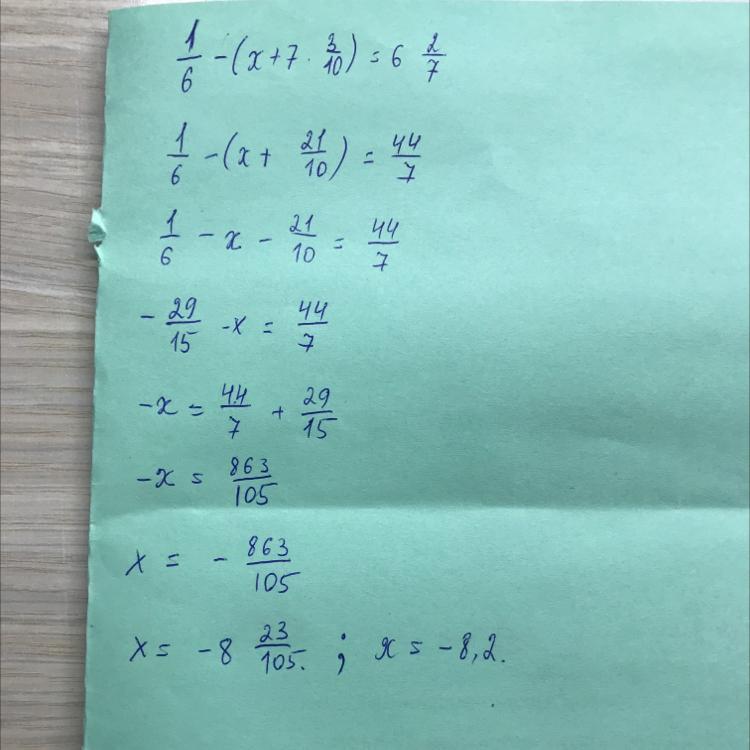 1/6 - (x + 7 · 3/10) = 6 2/7
1/6 - (x + 21/10) = 44/7
1/6 - x - 21/10 = 44/7
- 29/15 - x = 44/7
-x = 44/7 + 29/15
-x = 863/105
x = - 863/105
x = -8 23/105. ; x = -8,2.